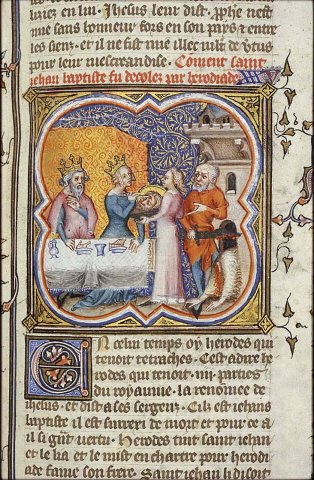 uriez en lui. Ihesus leur dist. Prophe nest
mie sans honneur fors en son pays & entre
les siens. et il ne fist mie illec mlt de vtus
pour leur mescreandise. Coment saint
iehan baptiste fu decolez par herodiade. XIV
En celui temps oy herodes qui
tenoit tetraches. Cest a dire he
rodes qui tenoit .iiii. parties
du royaume. la renomee de
ihesus. et dist a ses sergenz. Cilz est iehans
baptiste il est surrexi de mort et pour ce a
il si grant vertu. Herodes tint saint iehan
et le lia et le mist en chartre pour herodi
ade fame son frere. Saint iehan li disoit